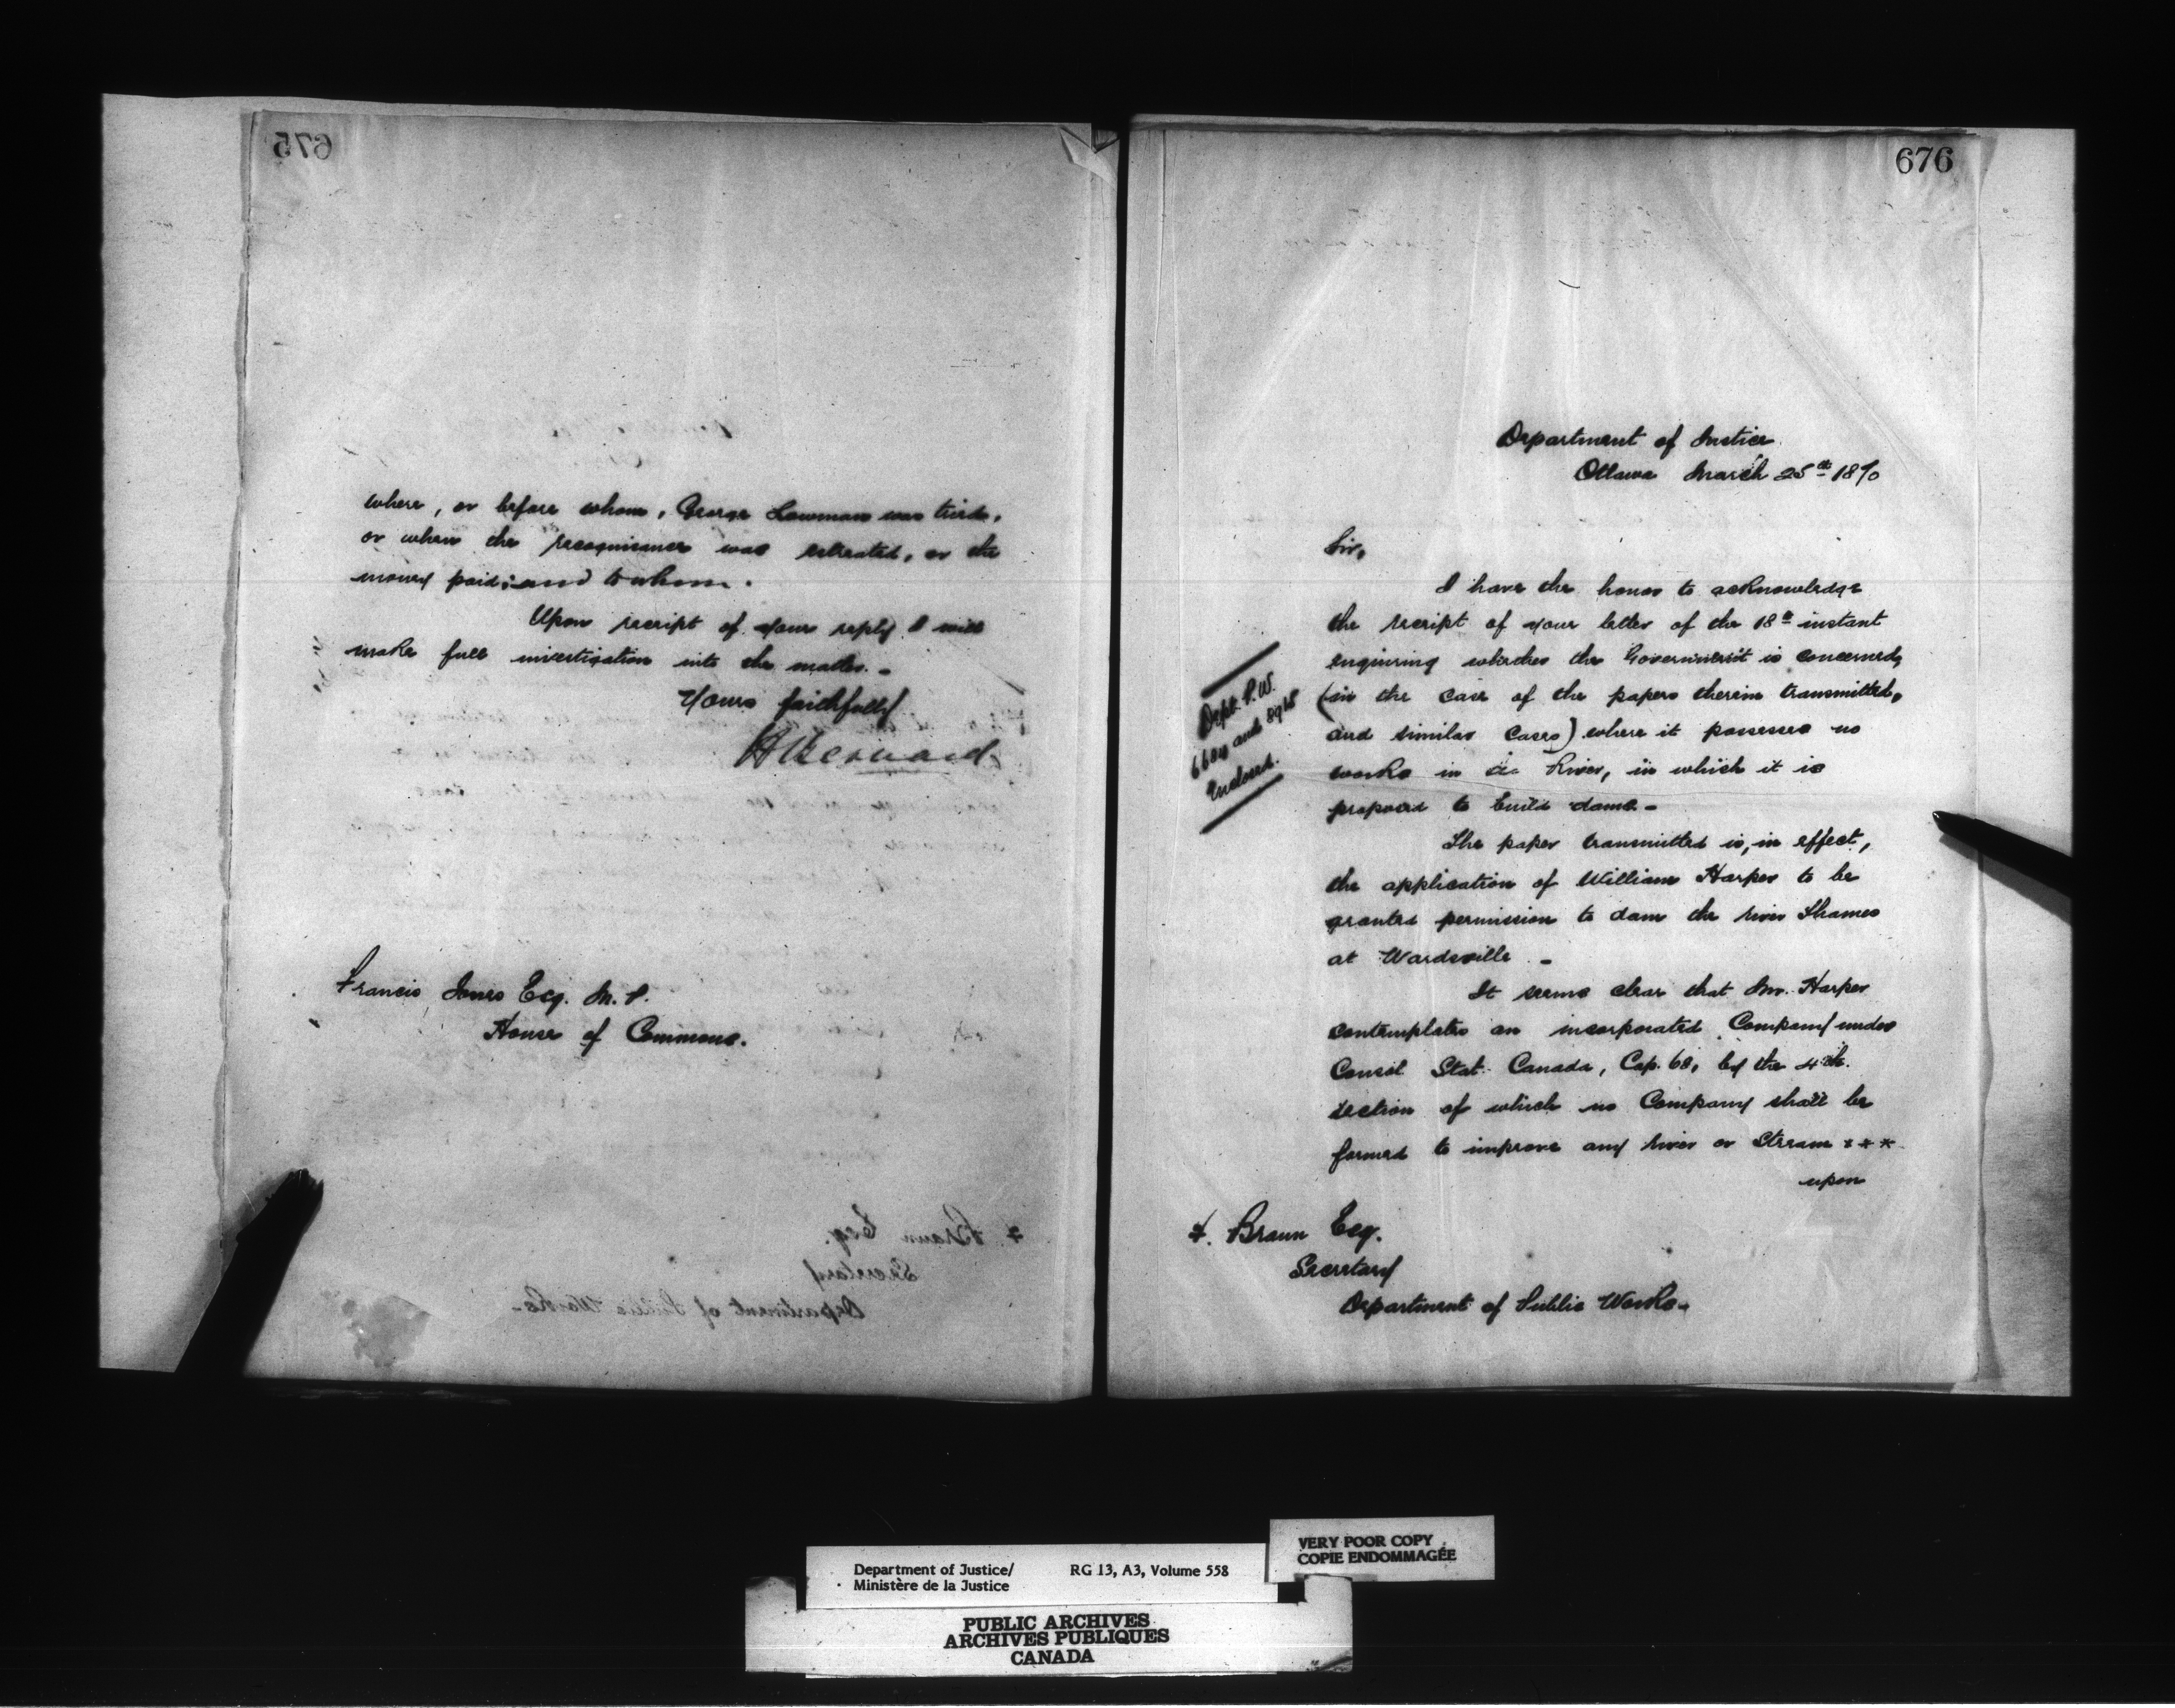 675
where, or before whom, George Lowman was tried,
or when the recognisance was estreated, or the
money paid; and to whom.
Upon receipt of your reply I will
make full investigation into the matter. -
Yours faithfully
H Bernard
Francis Jones Esq. M. P.
House of Commons.
676
Department of Justice
Ottawa March 25th 1870
Sir,
I have the honor to acknowledge
the receipt of your letter of the 18th instant
enquiring whether the Government is concerned,
(in the case of the papers therein transmitted,
and similar cases) where it possesses no
works in the River, in which it is
proposed to build dams -
Dept. P. W.
and
Enclosed.
The paper transmitted is, in effect,
the application of William Harper to be
granted permission to dam the river Thames
at Wardsville -
It seems clear that Mr. Harper
contemplates an incorporated Company under
Consol Stat. Canada, Cap. 68, by the 4th.
section of which no Company shall be
formed to improve any river or Stream * * *
upon
F. Braun Esq.
Secretary
Department of Public Works -
Department of Justice/ RG 13, A3, Volume 558
Ministère de la Justice
VERY POOR COPY
COPIE ENDOMMAGÉE
PUBLIC ARCHIVES
ARCHIVES PUBLIQUES
CANADA